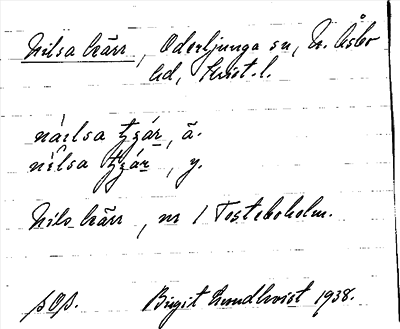 Nilsa kärr, Oderljunga sn, N. Åsbo
hd, Krist. l.
náilsa tʒár, ä.
nílsa tʒár, y.
Nils kärr, nr 1 Tosteboholm.
Birgit Lundkvist 1938.